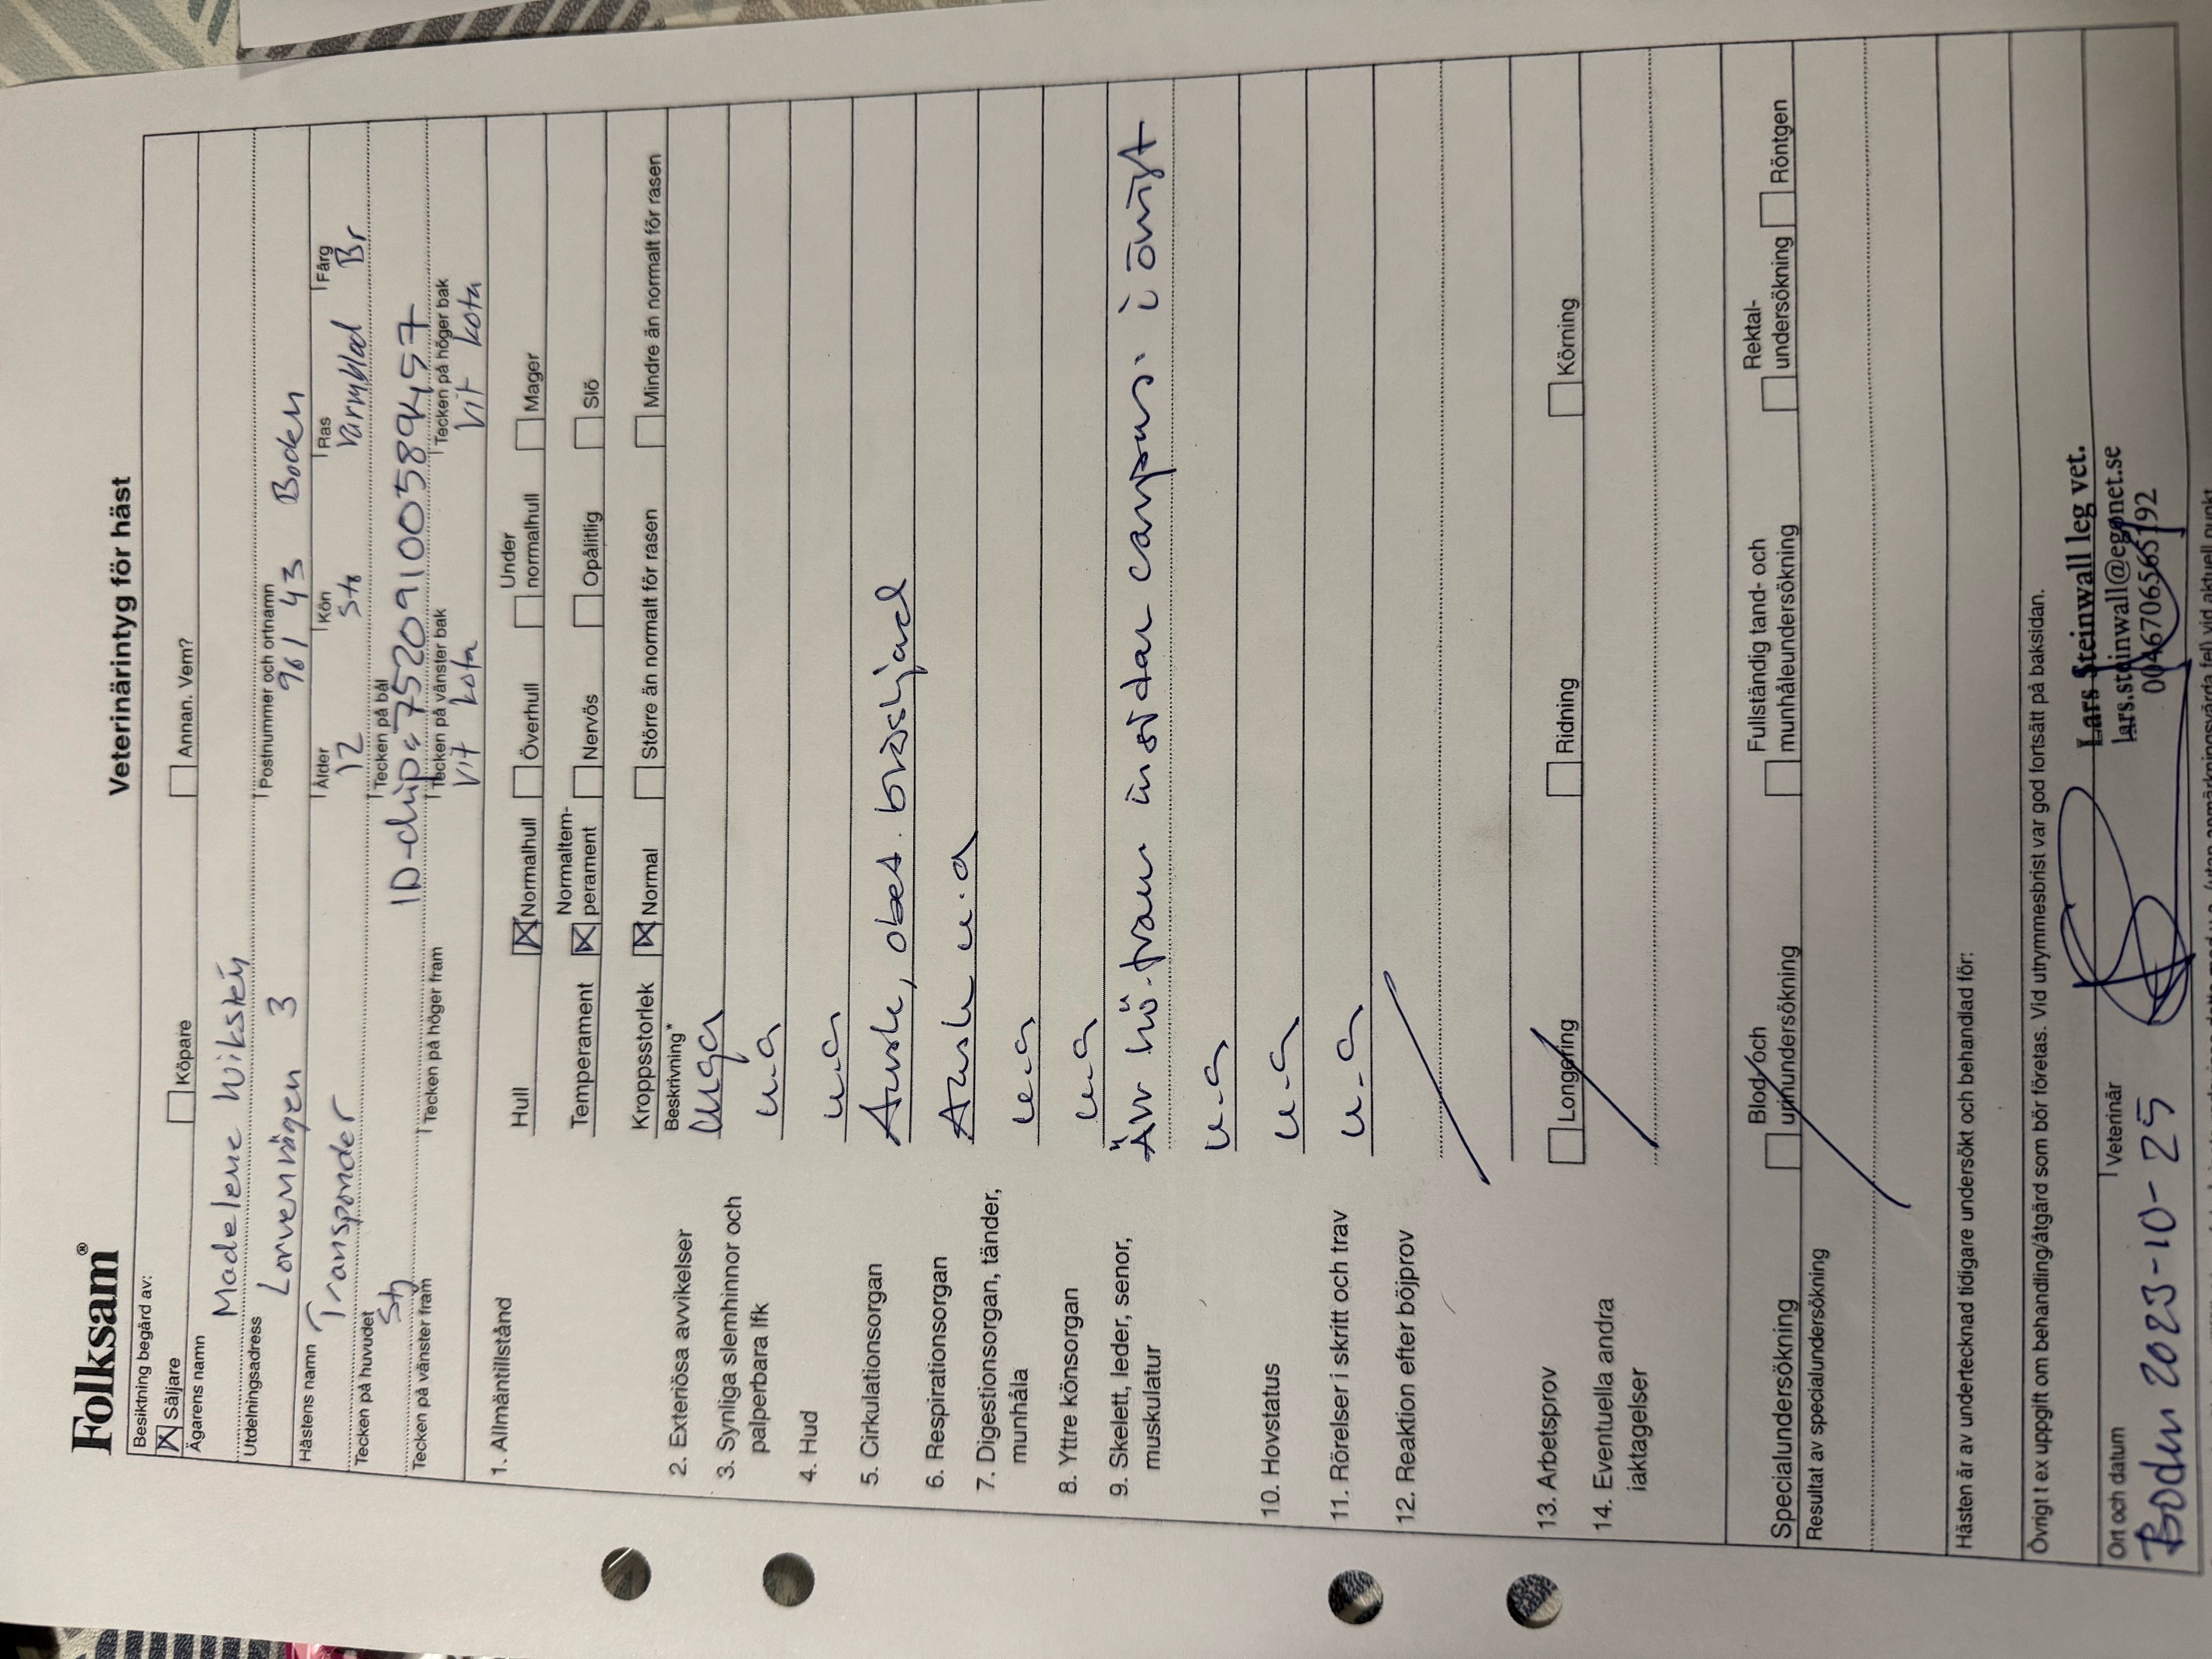 Folksam®
Veterinärintyg för häst
Besiktning begärd av:
☒ Säljare ☐ Köpare ☐ Annan. Vem?
Ägarens namn
Madelene Wikstén
Utdelningsadress Postnummer och ortnamn
Lomvenvägen 3 961 43 Boden
Hästens namn Ålder Kön Ras Färg
Transponder 12 Sto Varmblod Br
Tecken på huvudet Tecken på bål
Stj ID-chip: 752091005894457
Tecken på vänster fram Tecken på höger fram Tecken på vänster bak Tecken på höger bak
Vit kota Vit kota
1. Allmäntillstånd
Hull ☒ Normalhull ☐ Överhull ☐ Under normalhull ☐ Mager
Temperament ☒ Normaltemperament ☐ Nervös ☐ Opålitlig ☐ Slö
Kroppsstorlek ☒ Normal ☐ Större än normalt för rasen ☐ Mindre än normalt för rasen
Beskrivning*
2. Exteriösa avvikelser Inga
3. Synliga slemhinnor och palperbara lfk u.a
4. Hud u.a
5. Cirkulationsorgan Ausk, obet. blåsljud
6. Respirationsorgan Ausk u.a
7. Digestionsorgan, tänder, munhåla u.a
8. Yttre könsorgan u.a
9. Skelett, leder, senor, muskulatur Ärr hö.fram insidan carpus. i övrigt
u.a
10. Hovstatus u.a
11. Rörelser i skritt och trav u.a
12. Reaktion efter böjprov
13. Arbetsprov ☐ Longering ☐ Ridning ☐ Körning
14. Eventuella andra iaktagelser
Specialundersökning ☐ Blod- och urinundersökning ☐ Fullständig tand- och munhåleundersökning ☐ Rektal-undersökning ☐ Röntgen
Resultat av specialundersökning
Hästen är av undertecknad tidigare undersökt och behandlad för:
Övrigt t ex uppgift om behandling/åtgärd som bör företas. Vid utrymmesbrist var god fortsätt på baksidan.
Ort och datum Veterinär
Boden 2023-10-25
Lars Steinwall leg vet.
Lars.steinwall@egonet.se
0046706565192